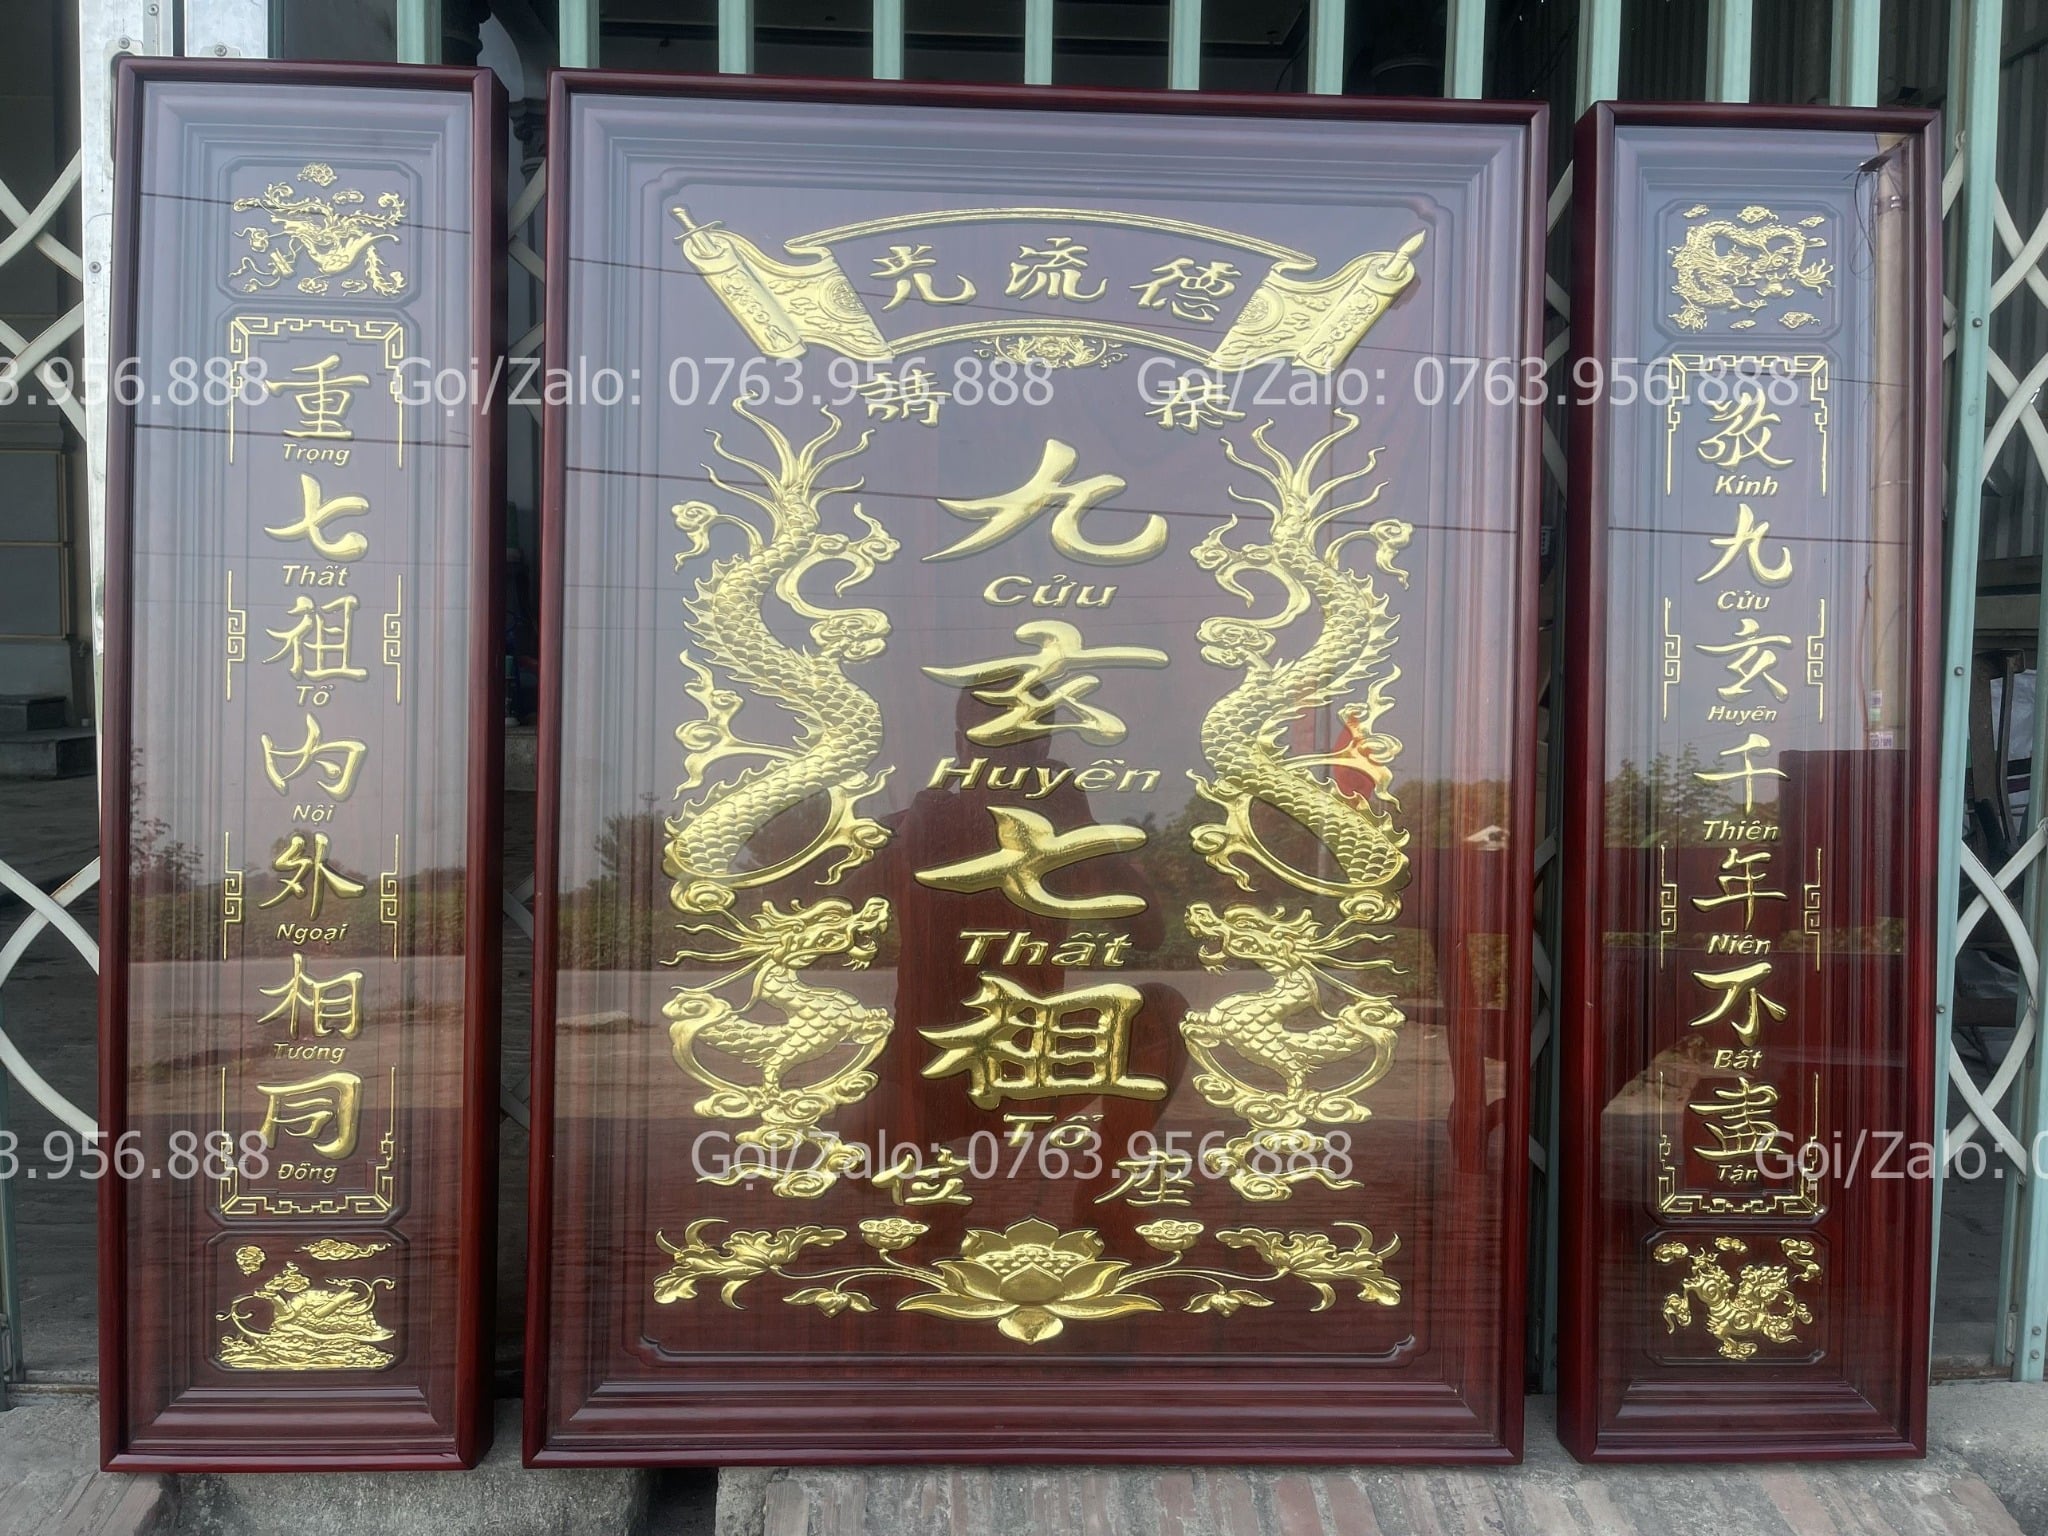 德流光
恭請
九
Cửu
玄
Huyền
七
Thất
祖
Tổ
座位
敬
Kính
九
Cửu
玄
Huyền
千
Thiên
年
Niên
不
Bất
盡
Tận
重
Trọng
七
Thất
祖
Tổ
内
Nội
外
Ngoại
相
Tương
同
Đồng
3.956.888
Gọi/Zalo: 0763.956.888
Gọi/Zalo: 0763.956.888
3.956.888
Gọi/Zalo: 0763.956.888
Gọi/Zalo: 0